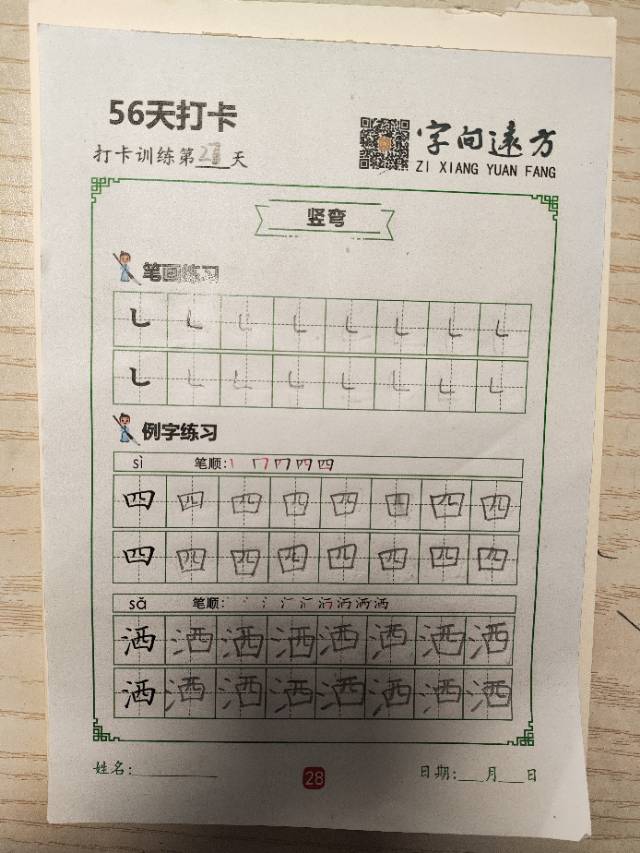 56天打卡
打卡训练第28天
字向远方
ZI XIANG YUAN FANG
竖弯
笔画练习
㇄ ㇄ ㇄ ㇄ ㇄ ㇄ ㇄ ㇄
㇄ ㇄ ㇄ ㇄ ㇄ ㇄ ㇄ ㇄
例字练习
sì 笔顺:
四 四 四 四 四 四 四 四
四 四 四 四 四 四 四 四
sǎ 笔顺:
洒 洒 洒 洒 洒 洒 洒 洒
洒 洒 洒 洒 洒 洒 洒 洒
姓名: 28 日期:__月__日